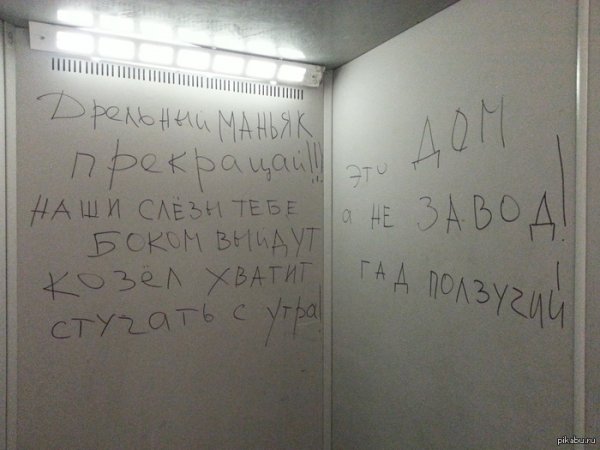 Дрельный МАНЬЯК
прекращай!!!
НАШИ СЛЁЗЫ ТЕБЕ
БОКОМ ВЫЙДУТ
КОЗЁЛ ХВАТИТ
стучать с утра!
это ДОМ
а НЕ ЗАВОД!
ГАД ПОЛЗУЧИЙ!
pikabu.ru